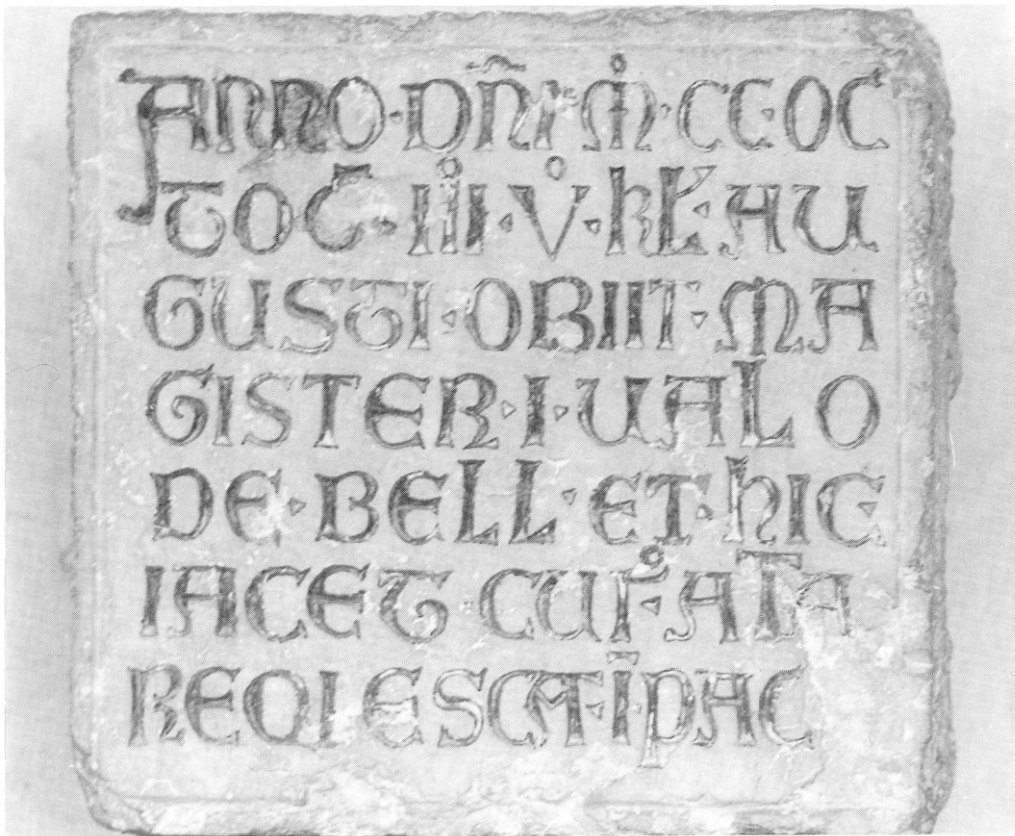 ANNO · DÑI · M̊ · CC · OC
TOG̅ · IIII̊ · V̊ · KL̕ · AU
GUSTI · OBIIT · MA
GISTER · I · UALO
DE · BELL · ET · hIC
IACET · CUI̊ · AĪA
REQIESCAT · Ī · PAC